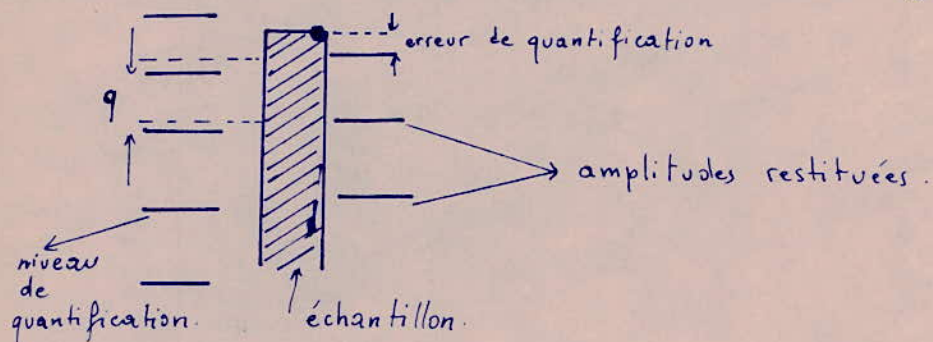 erreur de quantification
q
amplitudes restituées.
niveau
de
quantification.
échantillon.